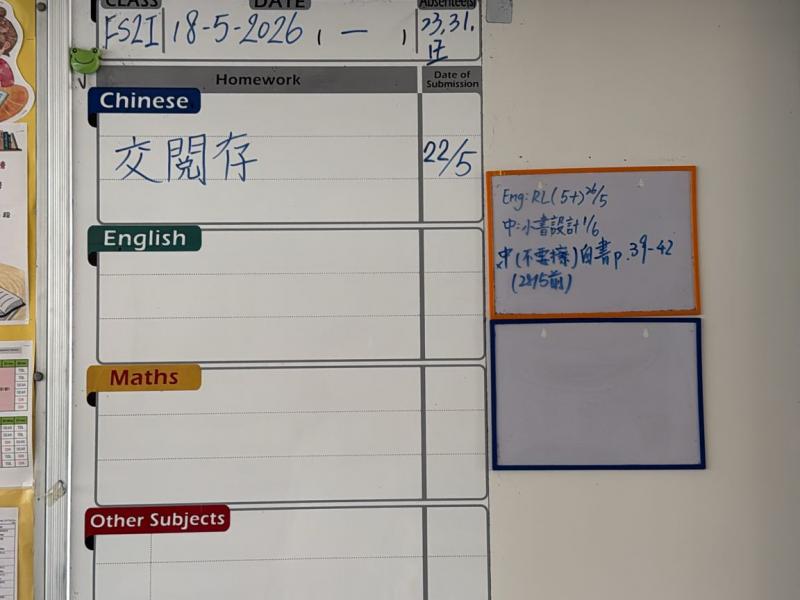 CLASS DATE Absentee(s)
18-5-2026 ( 一 ) 23, 31,
Homework Date of Submission
Chinese
交閱存 22/5
English
Maths
Other Subjects
Eng: RL(5+) 26/5
中:小書設計 1/6
中(不要擦)自書p.39-42